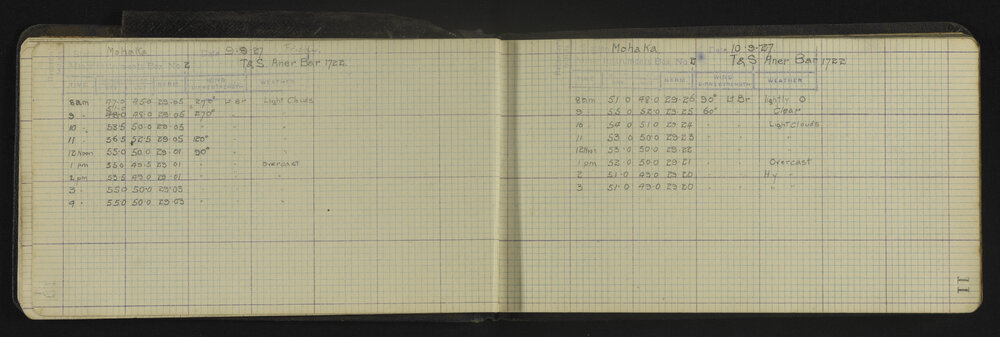 Mohaka Date 9-9-27 Friday
Instruments Box No 2 T&S Aner Bar 1722
TIME WIND WEATHER
DIRN STRENGTH
8am 47.0 45.0 29.05 270° Lt Br Light Clouds
9 " 48.0 29.05 270° " "
10 " 53.5 50.0 29.05 " " "
11 " 56.5 52.5 29.05 120° " "
12 Noon 55.0 50.0 29.01 90° " "
1 pm 55.0 49.5 29.01 " " Overcast
2 pm 53.5 49.0 29.01 " " "
3 " 55.0 50.0 29.03 " " "
4 " 55.0 50.0 29.03 " " "
Mohaka Date 10-9-27
Instruments Box No 2 T&S Aner Bar 1722
TIME WIND WEATHER
DIRN STRENGTH
8am 51.0 48.0 29.26 90° Lt Br lightly O
9 " 55.0 52.0 29.25 60° " Clear
10 54.0 51.0 29.24 " " Light Clouds
11 53.0 50.0 29.23 " " "
12 Noon 53.0 50.0 29.22 " " "
1 pm 52.0 50.0 29.21 " " Overcast
2 51.0 49.0 29.20 " " Hy "
3 51.0 49.0 29.20 " " " "
11